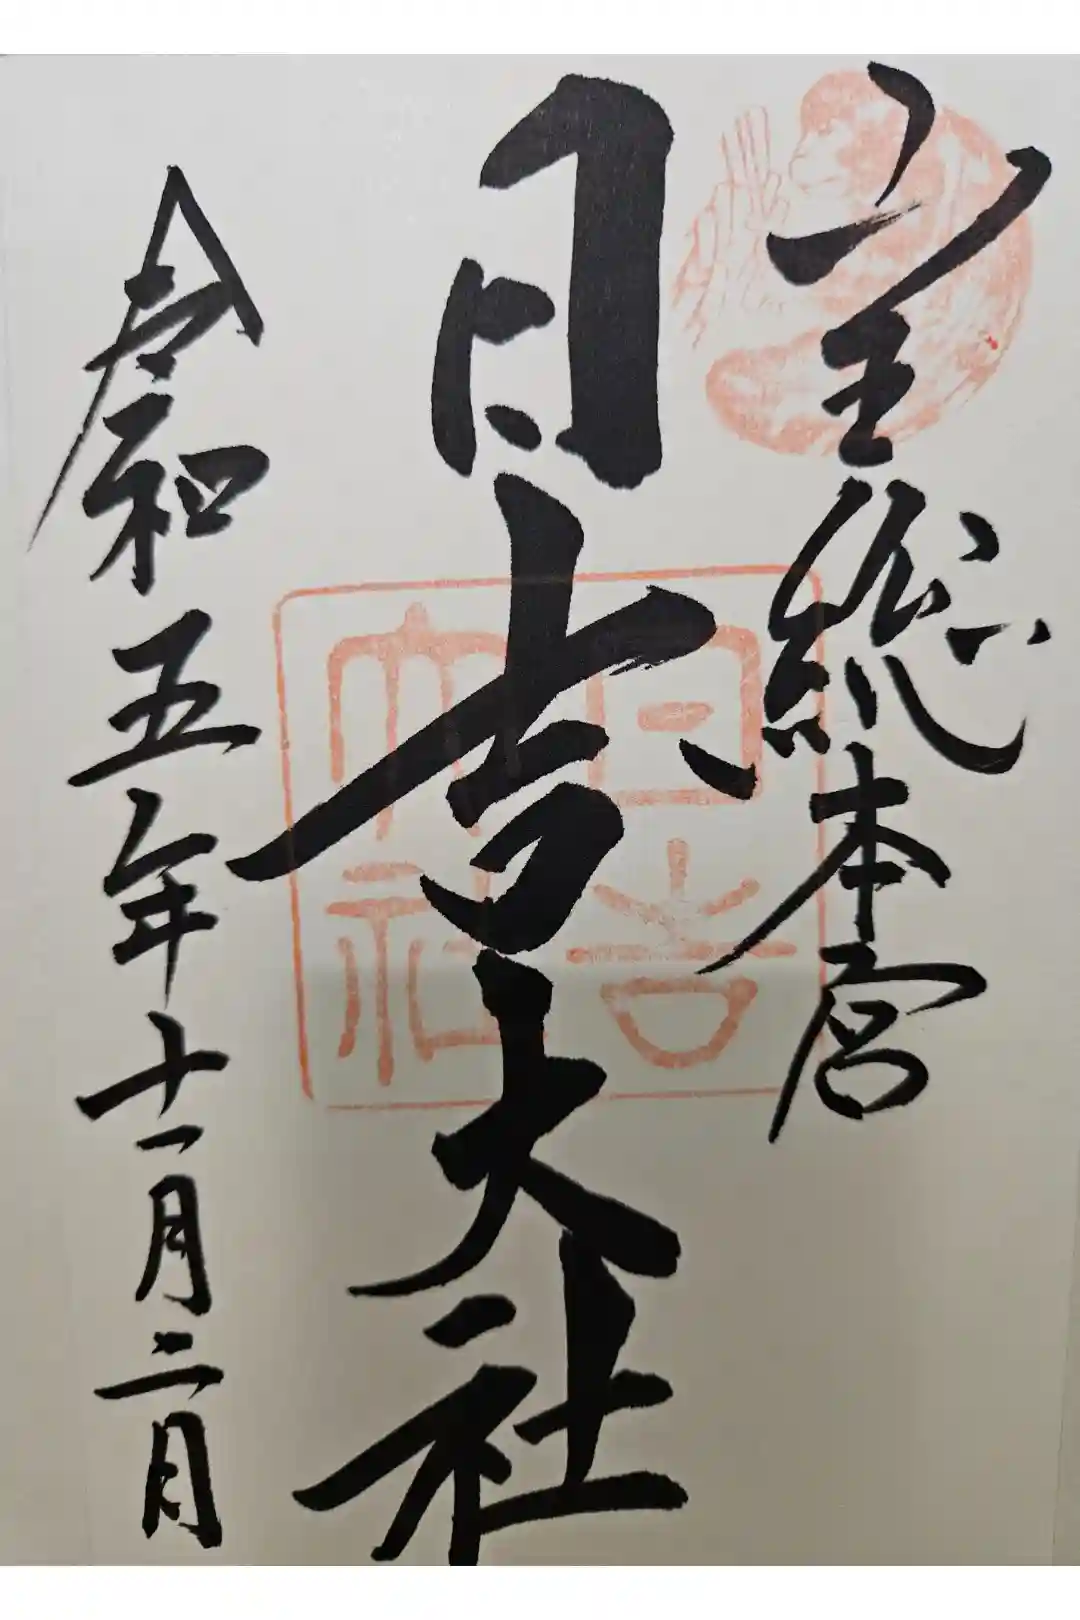 山王総本宮
日吉大社
日吉
大社
令和五年十一月二日